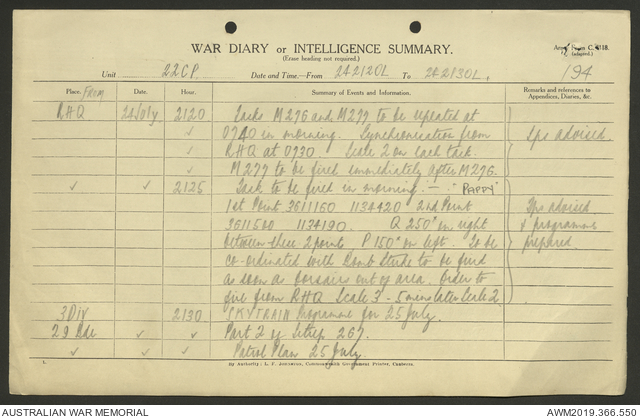 WAR DIARY or INTELLIGENCE SUMMARY.
(Erase heading not required.)
Army Form C. 2118.
(adapted.)
Unit 22 C.P. Date and Time.—From 242120L To 242130L.
194
Place. From Date. Hour. Summary of Events and Information. Remarks and references to Appendices, Diaries, &c.
RHQ 24 July 2120 Tasks M276 and M277 to be repeated at
✓ 0740 in morning. Synchronisation from Sps advised.
✓ RHQ at 0730 Scale 2 on each task.
✓ M277 to be fired immediately after M276.
✓ ✓ 2125 Task to be fired in morning. — "PAPPY"
1st Point 3611160 1134420 2nd Point Sps advised
3611500 1134190. Q 250° on right & programme
between these 2 points P 150° on left. To be prepared.
co-ordinated with Bomb Strike to be fired
as soon as Corsairs out of area. Order to
fire from RHQ Scale 3 - 5 mins later Scale 2.
3 Div 2130 SKYTRAIN Programme for 25 July.
29 Bde ✓ ✓ Part 2 of Sitrep 267.
✓ ✓ ✓ Patrol Plan 25 July.
1.
By Authority: L. F. Johnston, Commonwealth Government Printer, Canberra.
AUSTRALIAN WAR MEMORIAL
AWM2019.366.550